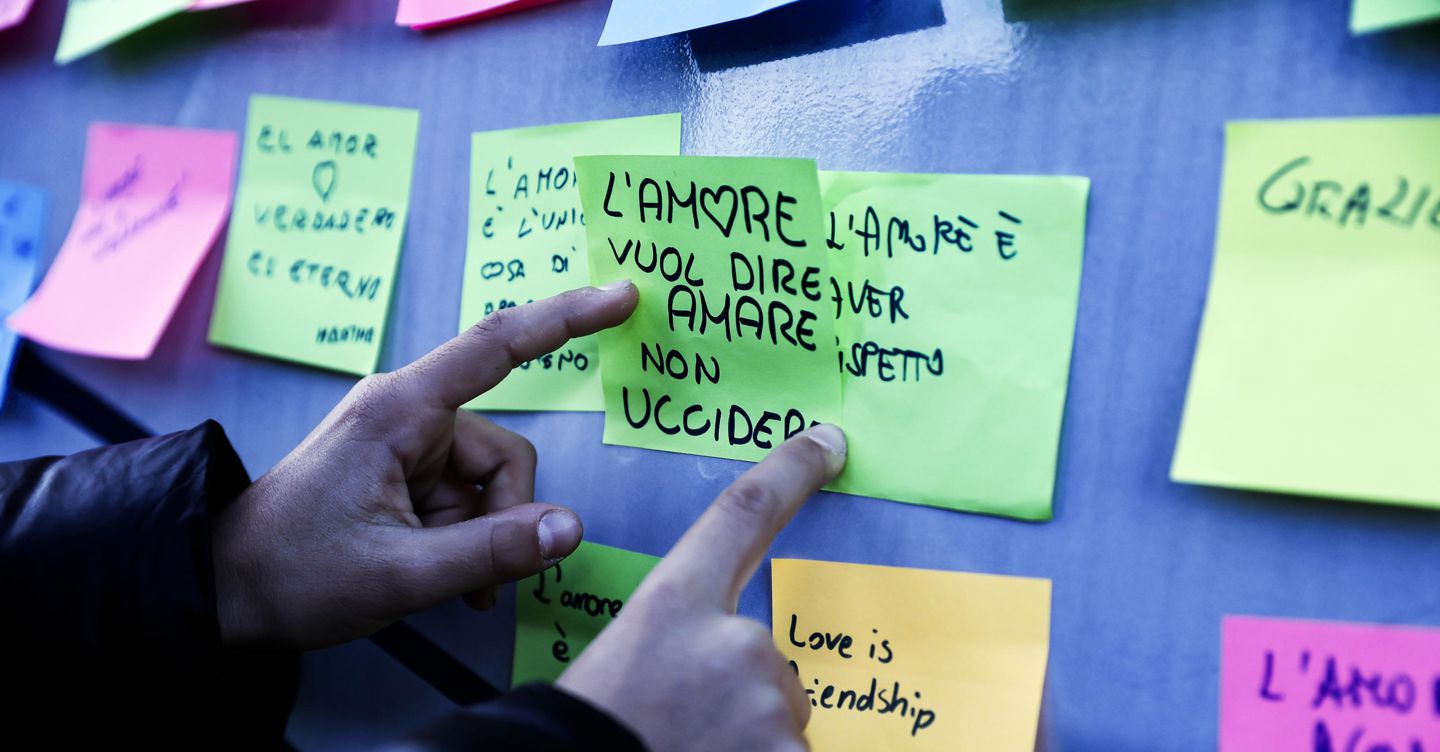 EL AMOR
VERDADERO
ES ETERNO
MARTHA
L'AMO
È L'UNIC
COSA DI
L'AM♡RE
VUOL DIRE
AMARE
NON
UCCIDER
L'AMORÈ È
AVER
ISPETTO
GRAZIE
L'amore
è
Love is
friendship
L'AMO